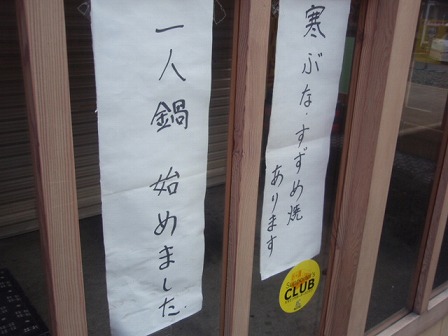 寒ぶな・すずめ焼
あります
一人鍋 始めました
CLUB